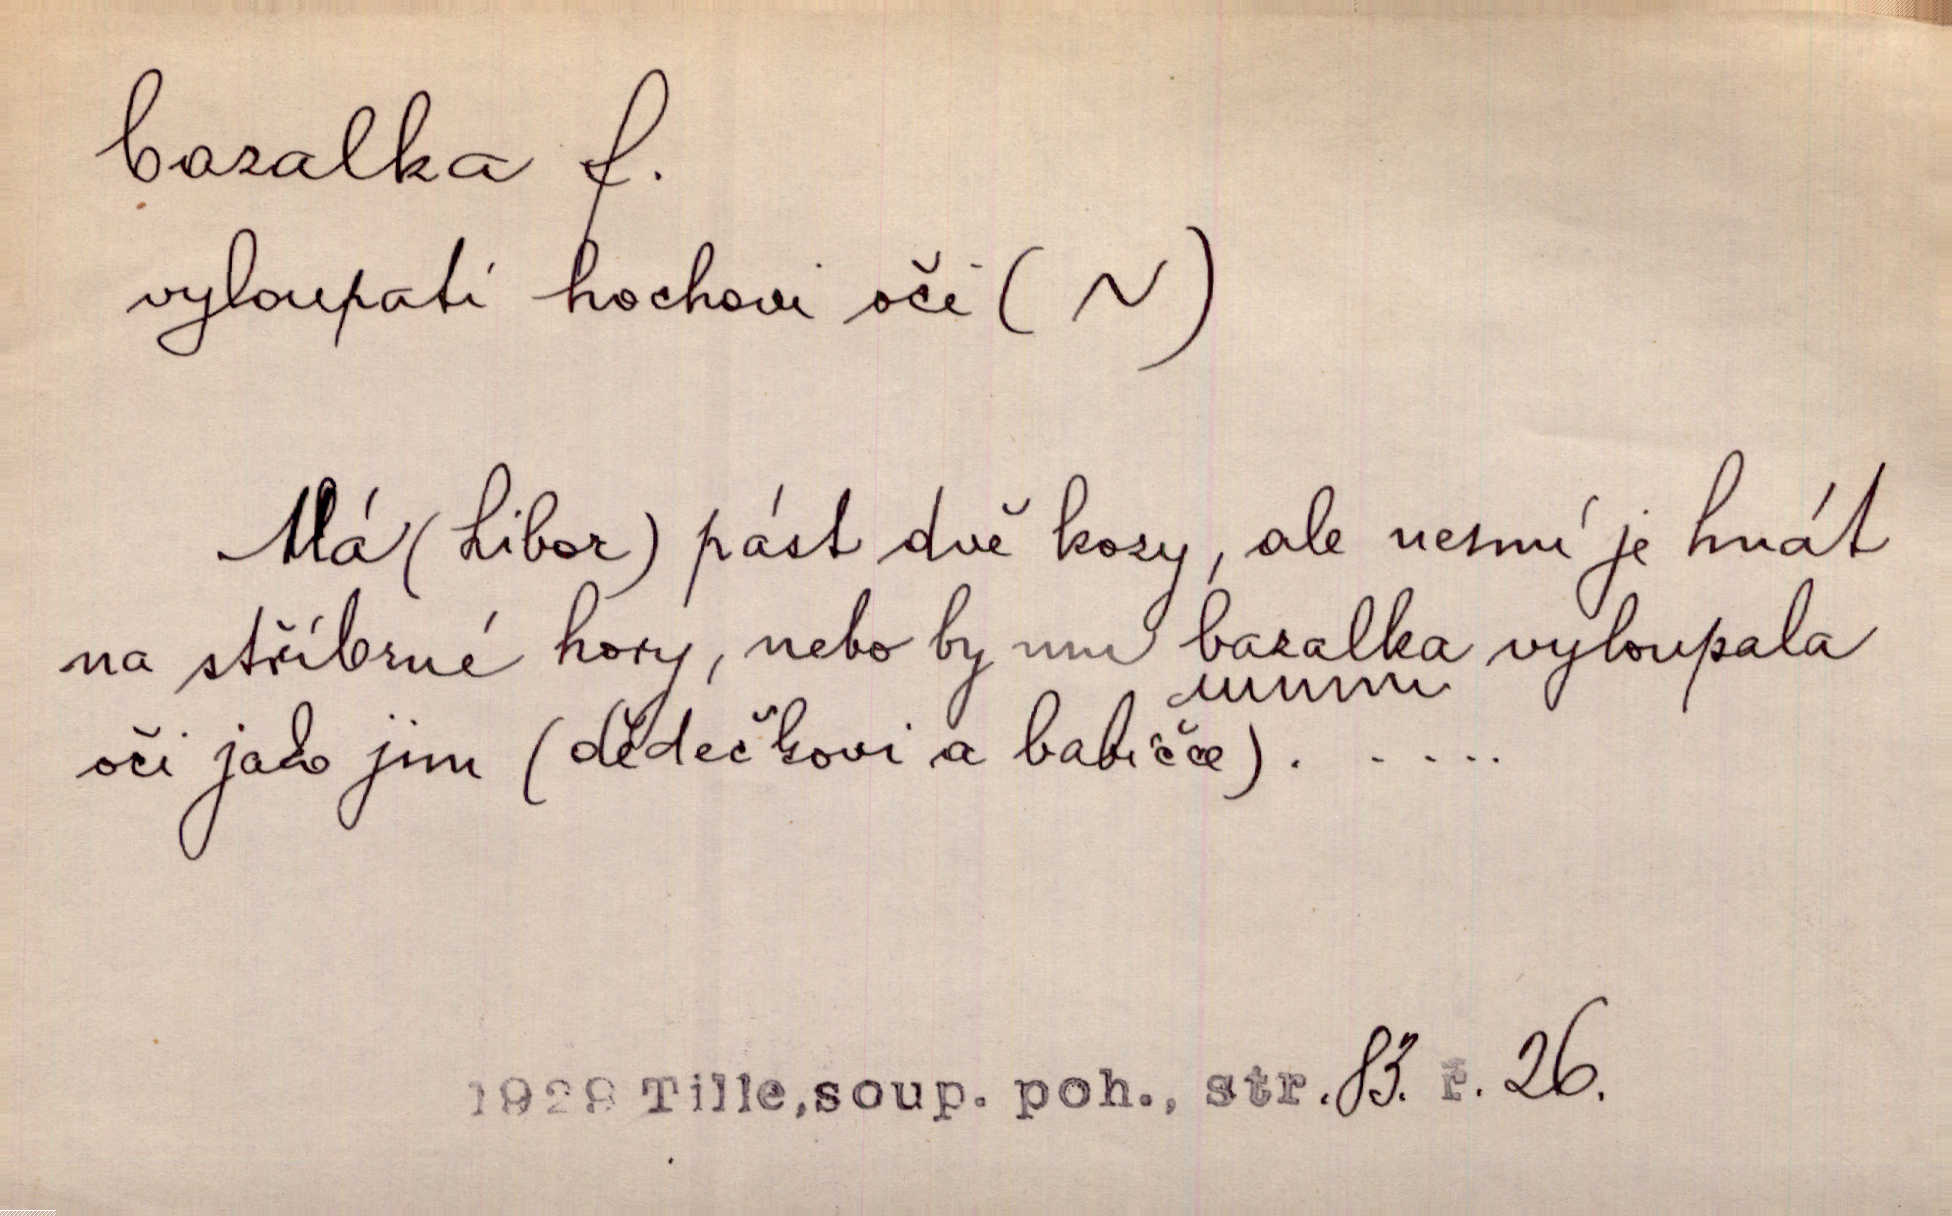 bazalka f.
vyloupati hochovi oči (N)
Má (Libor) pást dvě kozy, ale nesmí je hnát
na stříbrné hory, nebo by mu bazalka vyloupala
oči jako jim (dědečkovi a babičce) . . . . .
1929 Tille, soup. poh., str. 83. ř. 26.